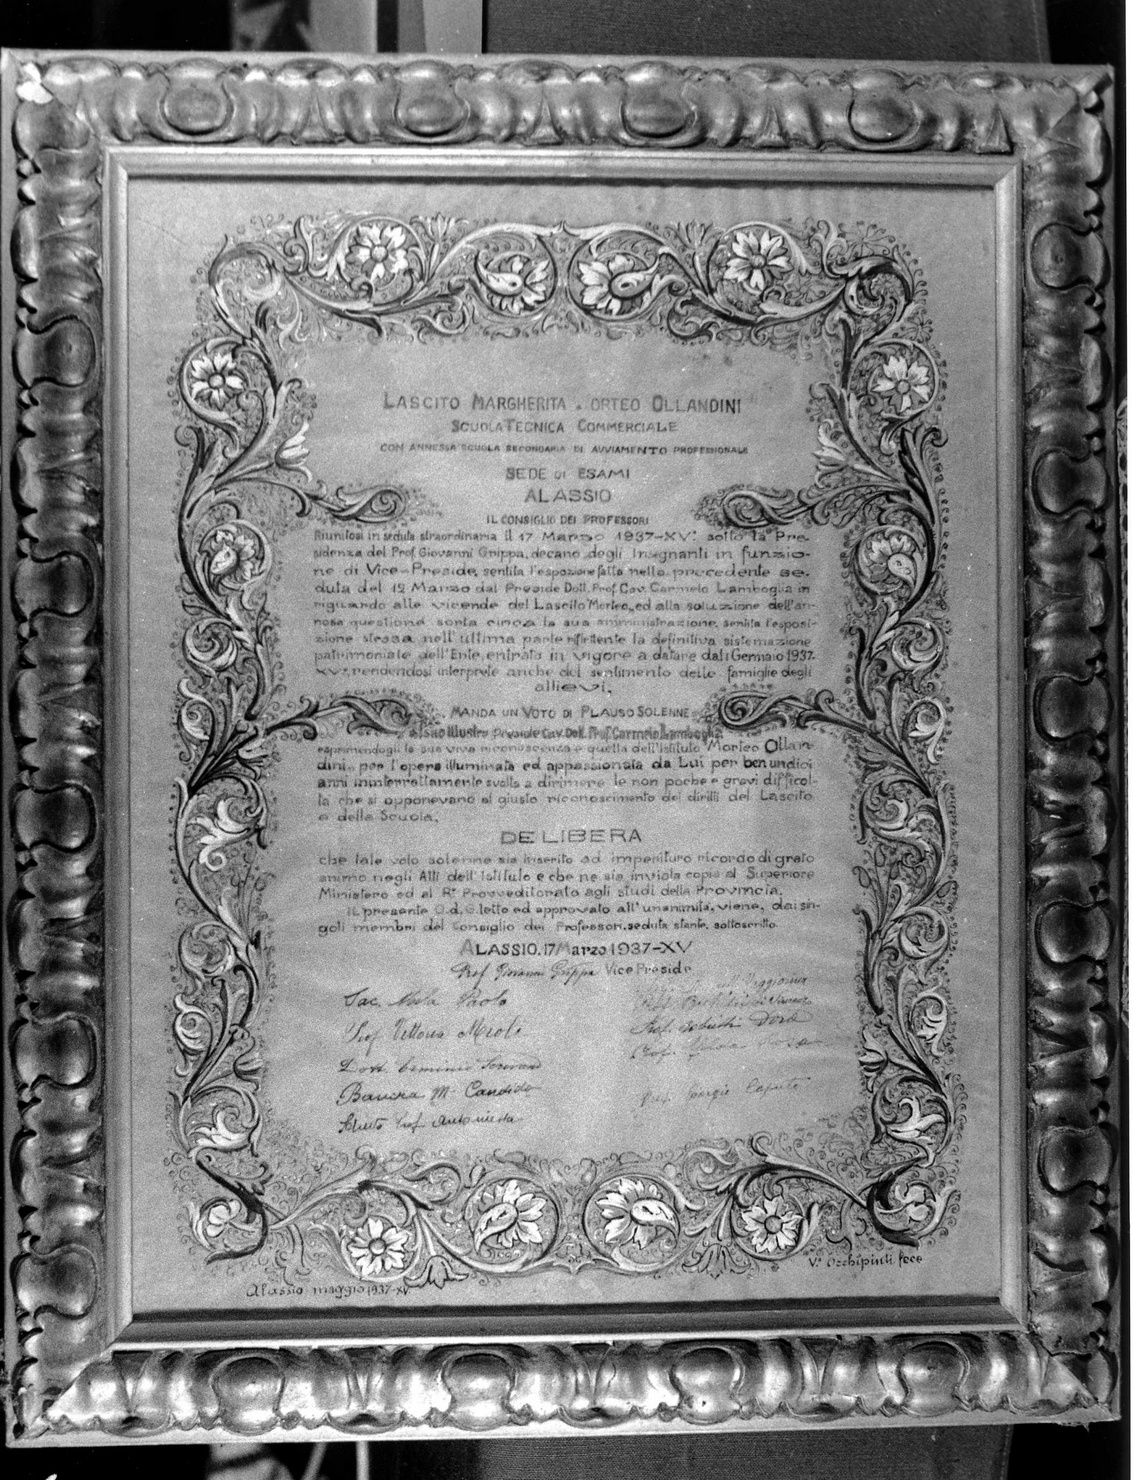 LASCITO MARGHERITA . ORTEO OLLANDINI
SCUOLA TECNICA COMMERCIALE
CON ANNESSA SCUOLA SECONDARIA DI AVVIAMENTO PROFESSIONALE
SEDE DI ESAMI
ALASSIO
IL CONSIGLIO DEI PROFESSORI
Riunitosi in seduta straordinaria il 17 Marzo 1937-XV. sotto la Pre-
sidenza del Prof. Giovanni Grippa, decano degli Insegnanti in funzio-
ne di Vice-Preside, sentita l'esposizione fatta nella precedente se-
duta del 12 Marzo dal Preside Dott. Prof. Cav. Carmelo Lamboglia in
riguardo alle vicende del Lascito Morteo, ed alla soluzione dell'an-
nosa questione sorta circa la sua amministrazione, sentita l'esposi-
zione stessa nell'ultima parte riflettente la definitiva sistemazione
patrimoniale dell'Ente, entrata in vigore a datare dal 1 Gennaio 1937.
XV, rendendosi interprete anche del sentimento delle famiglie degli
allievi,
MANDA UN VOTO DI PLAUSO SOLENNE
al suo illustre Preside Cav. Dott. Prof. Carmelo Lamboglia
esprimendogli la sua viva riconoscenza e quella dell'Istituto Morteo Ollan-
dini, per l'opera illuminata ed appassionata da Lui per ben undici
anni ininterrottamente svolta a dirimere le non poche e gravi difficol-
tà che si opponevano al giusto riconoscimento dei diritti del Lascito
e della Scuola.
DELIBERA
che tale voto solenne sia inserito ad imperituro ricordo di grato
animo negli Atti dell'Istituto e che ne sia inviata copia al Superiore
Ministero ed al R. Provveditorato agli studi della Provincia.
Il presente O.d.G. letto ed approvato all'unanimità, viene, dai sin-
goli membri del Consiglio dei Professori, seduta stante, sottoscritto.
ALASSIO, 17 Marzo 1937-XV
Prof. Giovanni Grippa Vice Preside
Sac. Paolo
Prof. Vittoria
Dott.
Bavera M. Candida
Prof. Antonietta
Prof. Dora
Prof.
Prof. Giorgio Caputo
Alassio maggio 1937-XV
V. Occhipinti fece